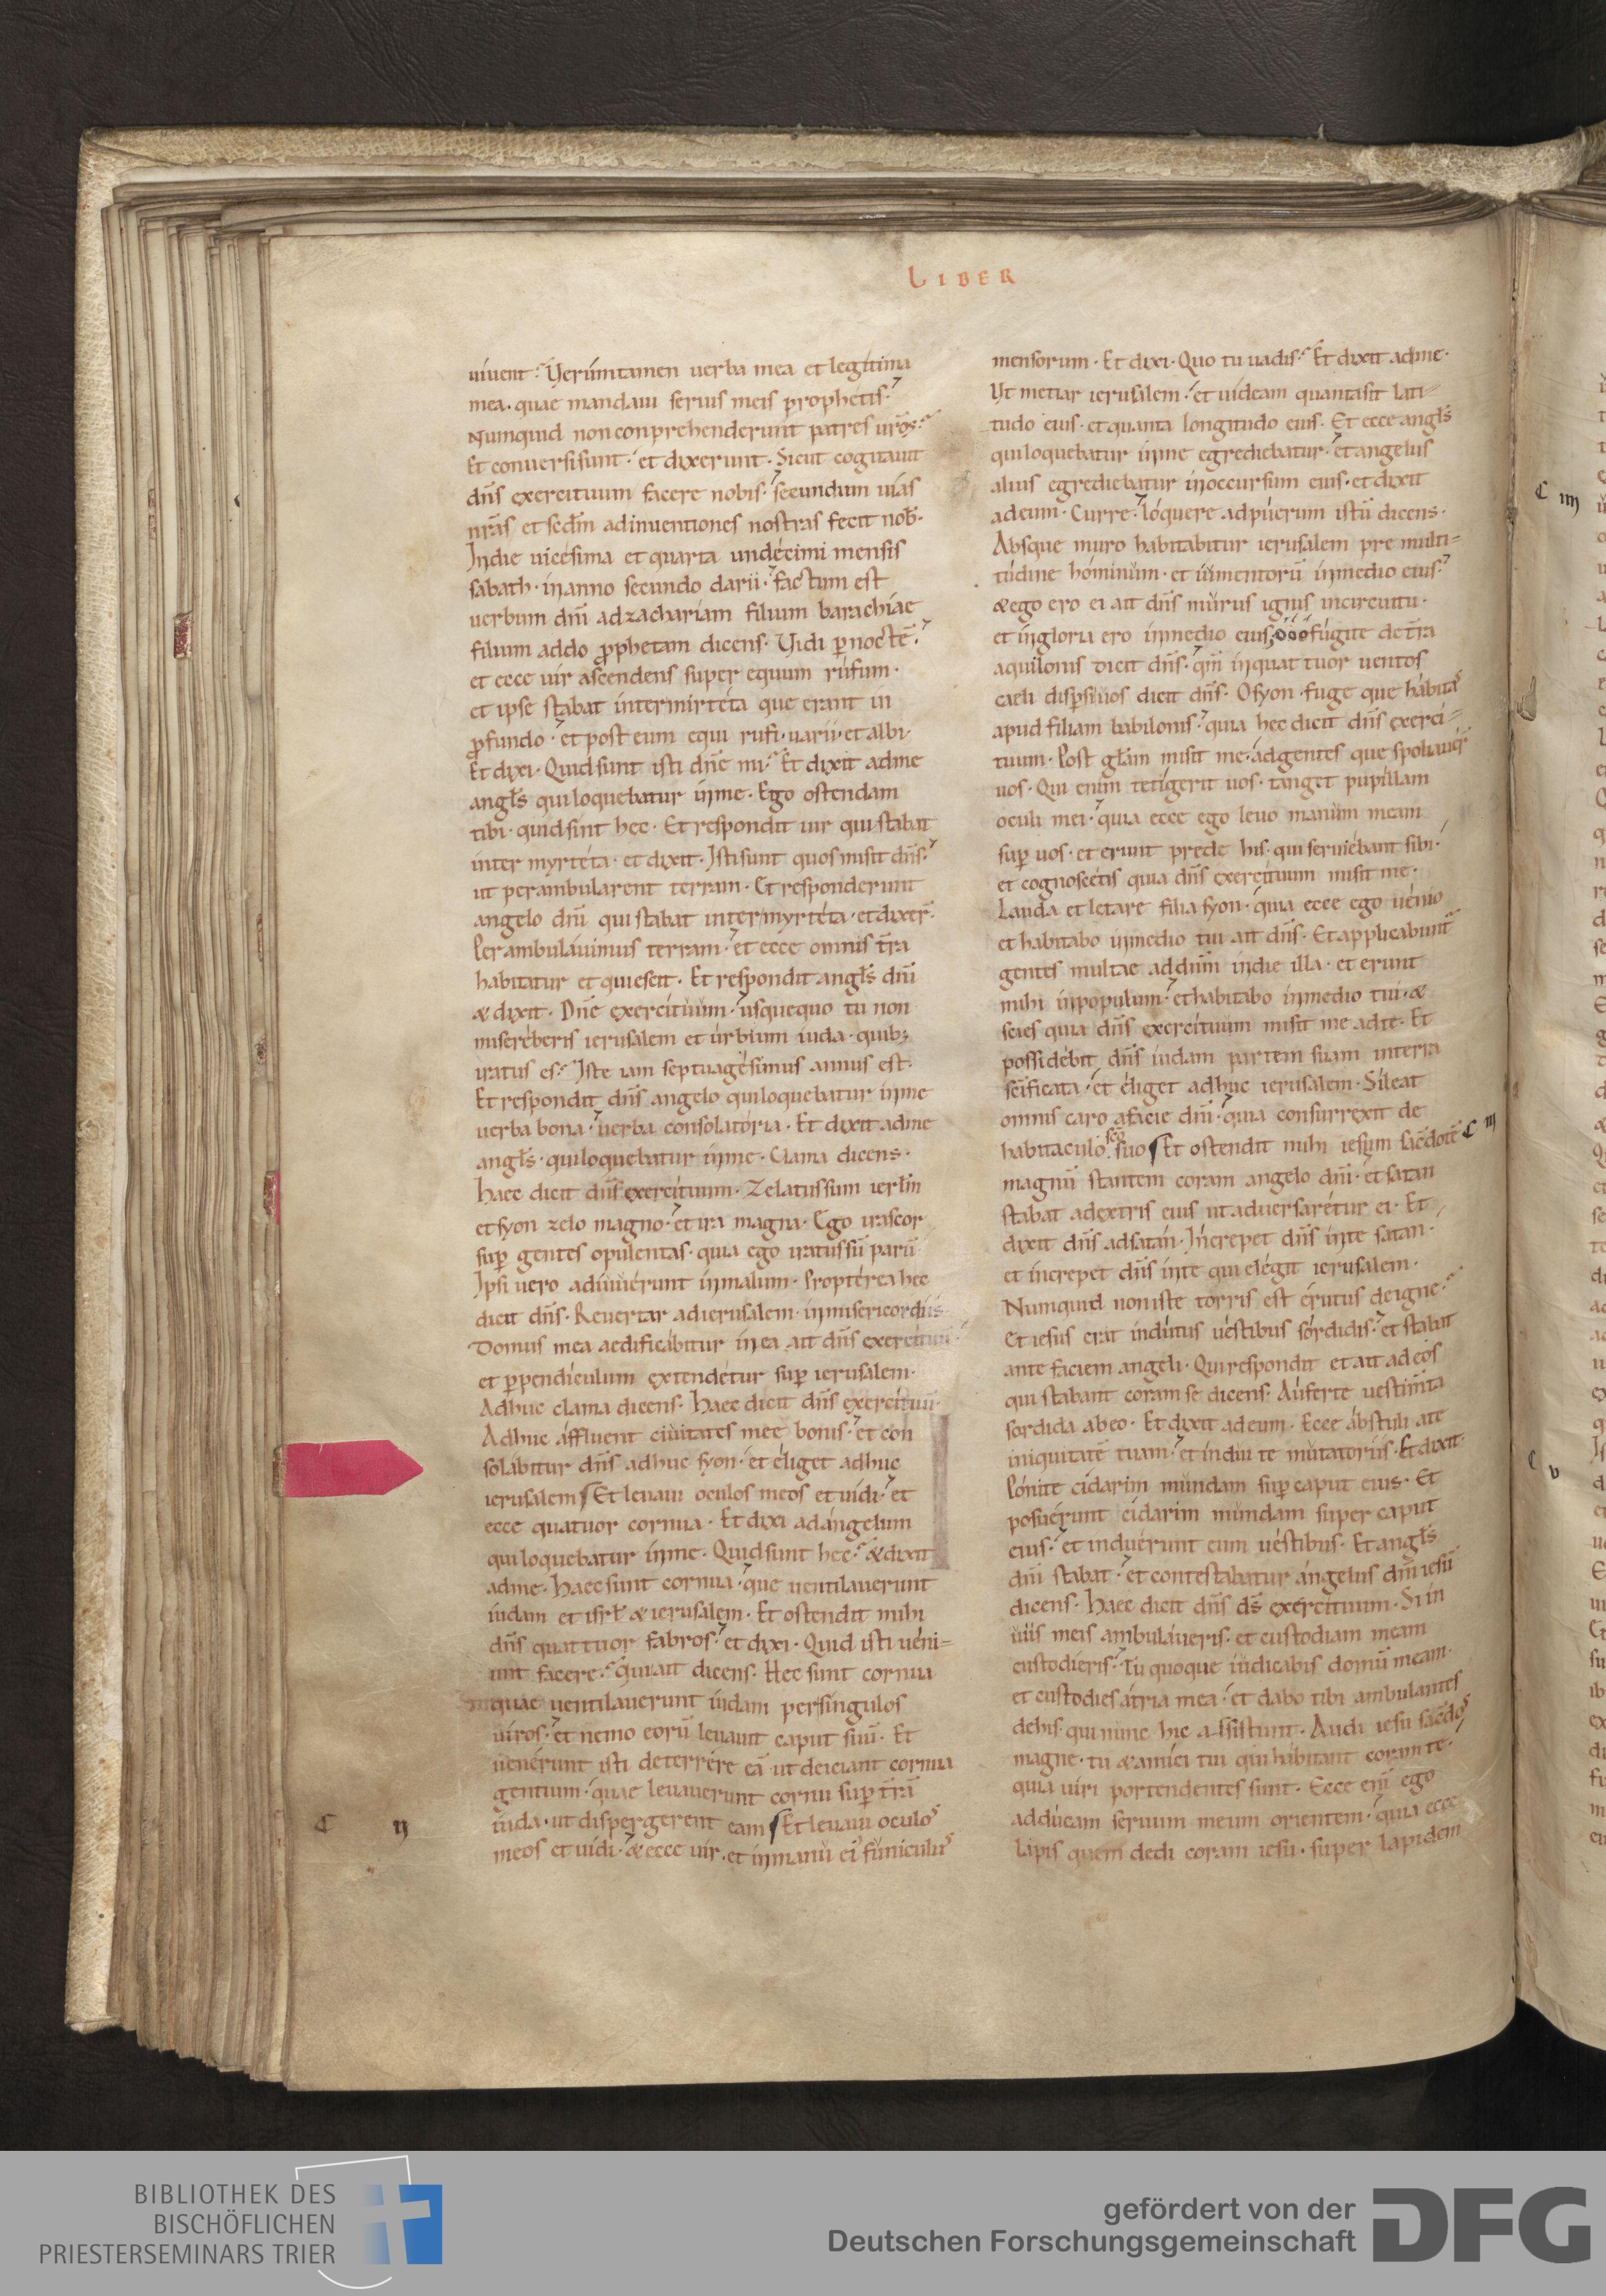 LIBER
uiuent? Verúmtamen uerba mea et legitima
mea. quae mandaui seruis meis prophetis.
Numquid non conprehenderunt patres ur̄os?
Et conuersi sunt. et dixerunt. Sicut cogitauit
dn̄s exercituum facere nobis. secundum uias
nr̄as et sedm̄ adinuentiones nostras fecit nob̄.
In die uicesima et quarta undecimi mensis
sabath. in anno secundo darii. factum est
uerbum dn̄i ad zachariam filium barachiae
filium addo ꝓphetam dicens. Vidi ꝑ noctē.
et ecce uir ascendens super equum rufum.
et ipse stabat inter mirtéta que erant in
ꝓfundo. et post eum equi rufi. uarii. et albi.
Et dixi. Quid sunt isti dn̄e mi? Et dixit ad me
angl̄s qui loquebatur in me. Ego ostendam
tibi. quid sint hec. Et respondit uir qui stabat
inter myrtéta. et dixit. Isti sunt quos misit dn̄s.
ut perambularent terram. Et responderunt
angelo dn̄i qui stabat inter myrtéta. et dixer̄.
Perambulauimus terram. et ecce omnis t̄ra
habitatur et quiescit. Et respondit angl̄s dn̄i
& dixit. Dn̄e exercituum. usquequo tu non
misereberis ierusalem et urbium iuda. quib;
iratus es? Iste iam septuagesimus annus est.
Et respondit dn̄s angelo qui loquebatur in me
uerba bona. uerba consolatoria. Et dixit ad me
angl̄s. qui loquebatur in me. Clama dicens.
Haec dicit dn̄s exercituum. Zelatus sum ierl̄m
et syon zelo magno. et ira magna. Ego irascor
suꝑ gentes opulentas. quia ego iratus sū parū.
Ipsi uero adiuuerunt in malum. Propterea hec
dicit dn̄s. Reuertar ad ierusalem. in misericordiis.
Domus mea aedificabitur in ea ait dn̄s exercituū.
et ꝑpendiculum extendetur suꝑ ierusalem.
Adhuc clama dicens. Haec dicit dn̄s exercituū.
Adhuc affluent ciuitates meę bonis. et con
solabitur dn̄s adhuc syon. et eliget adhuc
ierusalem Et leuaui oculos meos et uidi. et
ecce quatuor cornua. Et dixi ad angelum
qui loquebatur in me. Quid sunt hec? & dixit
ad me. Haec sunt cornua. que uentilauerunt
iudam et isrl̄ & ierusalem. Et ostendit mihi
dn̄s quattuor fabros. et dixi. Quid isti ueni=
unt facere? Qui ait dicens. Hec sunt cornua
quae uentilauerunt iudam per singulos
uiros. et nemo eorū leuauit caput suū. Et
uenerunt isti deterrére eā. ut deiciant cornua
gentium. quae leuauerunt cornu suꝑ t̄rā
iuda. ut dispergerent eam Et leuaui oculos
C II
meos et uidi. & ecce uir. et in manu ei' funiculus
mensorum. Et dixi. Quo tu uadis? Et dixit ad me.
Ut metiar ierusalem. et uideam quanta sit lati=
tudo eius. et quanta longitudo eius. Et ecce angl̄s
qui loquebatur in me egrediebatur. et angelus
alius egrediebatur in occursum eius. et dixit
ad eum. Curre. loquere ad puerum istū dicens.
Absque muro habitabitur ierusalem pre multi=
tudine hominum. et iumentorū in medio eius.
& ego ero ei ait dn̄s murus ignis in circuitu.
et in gloria ero in medio eius. o o o fugite de t̄ra
aquilonis dicit dn̄s. qm̄ in quattuor uentos
caeli dispersi uos dicit dn̄s. O syon. fuge que habitas
apud filiam babilonis. quia hec dicit dn̄s exerci=
tuum. Post gl̄am misit me. ad gentes que spoliauer̄
uos. Qui enim tetigerit uos. tanget pupillam
oculi mei. quia ecce ego leuo manum meam
suꝑ uos. et erunt prede his. qui seruiebant sibi.
et cognoscetis quia dn̄s exercituum misit me.
Lauda et letare filia syon. quia ecce ego uenio
et habitabo in medio tui ait dn̄s. Et applicabunt
gentes multae ad dn̄m in die illa. et erunt
mihi in populum. et habitabo in medio tui. &
scies quia dn̄s exercituum misit me ad te. Et
possidebit dn̄s iudam partem suam in terra
sc̄ificata. et eliget adhuc ierusalem. Sileat
omnis caro a facie dn̄i. quia consurrexit de
habitaculo sc̄o suo Et ostendit mihi iesum sacdotē
C III
magnū stantem coram angelo dn̄i. et satan
stabat a dextris eius ut aduersaretur ei. Et
dixit dn̄s ad satan. Increpet dn̄s in te satan.
et increpet dn̄s in te qui elegit ierusalem.
Numquid non iste torris est erutus de igne?
Et iesus erat indutus uestibus sordidis. et stabat
ante faciem angeli. Qui respondit et ait ad eos
qui stabant coram se dicens. Auferte uestim̄ta
sordida ab eo. Et dixit ad eum. Ecce abstuli a te
iniquitatē tuam. et indui te mutatoriis. Et dixit.
Ponite cidarim mundam suꝑ caput eius. Et
posuerunt cidarim mundam super caput
eius. et induerunt eum uestibus. Et angl̄s
dn̄i stabat. et contestabatur angelus dn̄i iesū
dicens. Haec dicit dn̄s ds̄ exercituum. Si in
uiis meis ambulaueris. et custodiam meam
custodieris. Tu quoque iudicabis domū meam.
et custodies atria mea. et dabo tibi ambulantes
de his. qui nunc hic assistunt. Audi iesu sacdos
magne. tu & amici tui qui habitant coram te.
quia uiri portendentes sunt. Ecce eni̅ ego
adducam seruum meum orientem. quia ecce
lapis quem dedi coram iesu. super lapidem
C IIII
C V
BIBLIOTHEK DES
BISCHÖFLICHEN
PRIESTERSEMINARS TRIER
gefördert von der
Deutschen Forschungsgemeinschaft
DFG